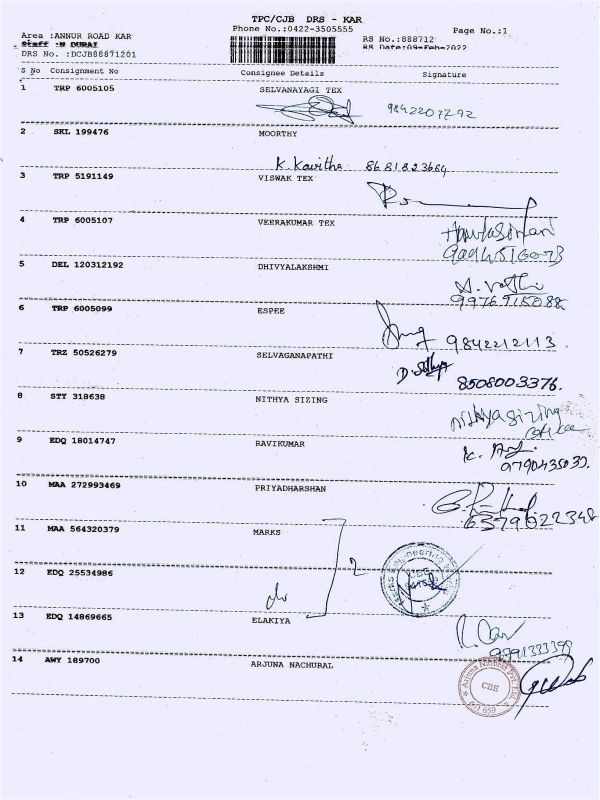 TPC/CJB DRS - KAR
Phone No.:0422-3505555
Page No.:1
Area :ANNUR ROAD KAR
RS No.:888712
Staff :N DURAI
RS Date:09-Feb-2022
DRS No. :DCJB88871201
S No Consignment No Consignee Details Signature
1 TRP 6005105 SELVANAYAGI TEX
9842207292
2 SKL 199476 MOORTHY
K. Kavitha 8681823684
3 TRP 5191149 VISWAK TEX
4 TRP 6005107 VEERAKUMAR TEX
5 DEL 120312192 DHIVYALAKSHMI
6 TRP 6005099 ESPEE
9842212113
7 TRZ 50526279 SELVAGANAPATHI
8508003376.
8 STY 318638 NITHYA SIZING
Nithya sizing
9 EDQ 18014747 RAVIKUMAR
10 MAA 272993469 PRIYADHARSHAN
11 MAA 564320379 MARKS
2
12 EDQ 25534986
do
13 EDQ 14869665 ELAKIYA
14 AWY 189700 ARJUNA NACHURAL
Arjuna Natural Pvt. Ltd.
CBE